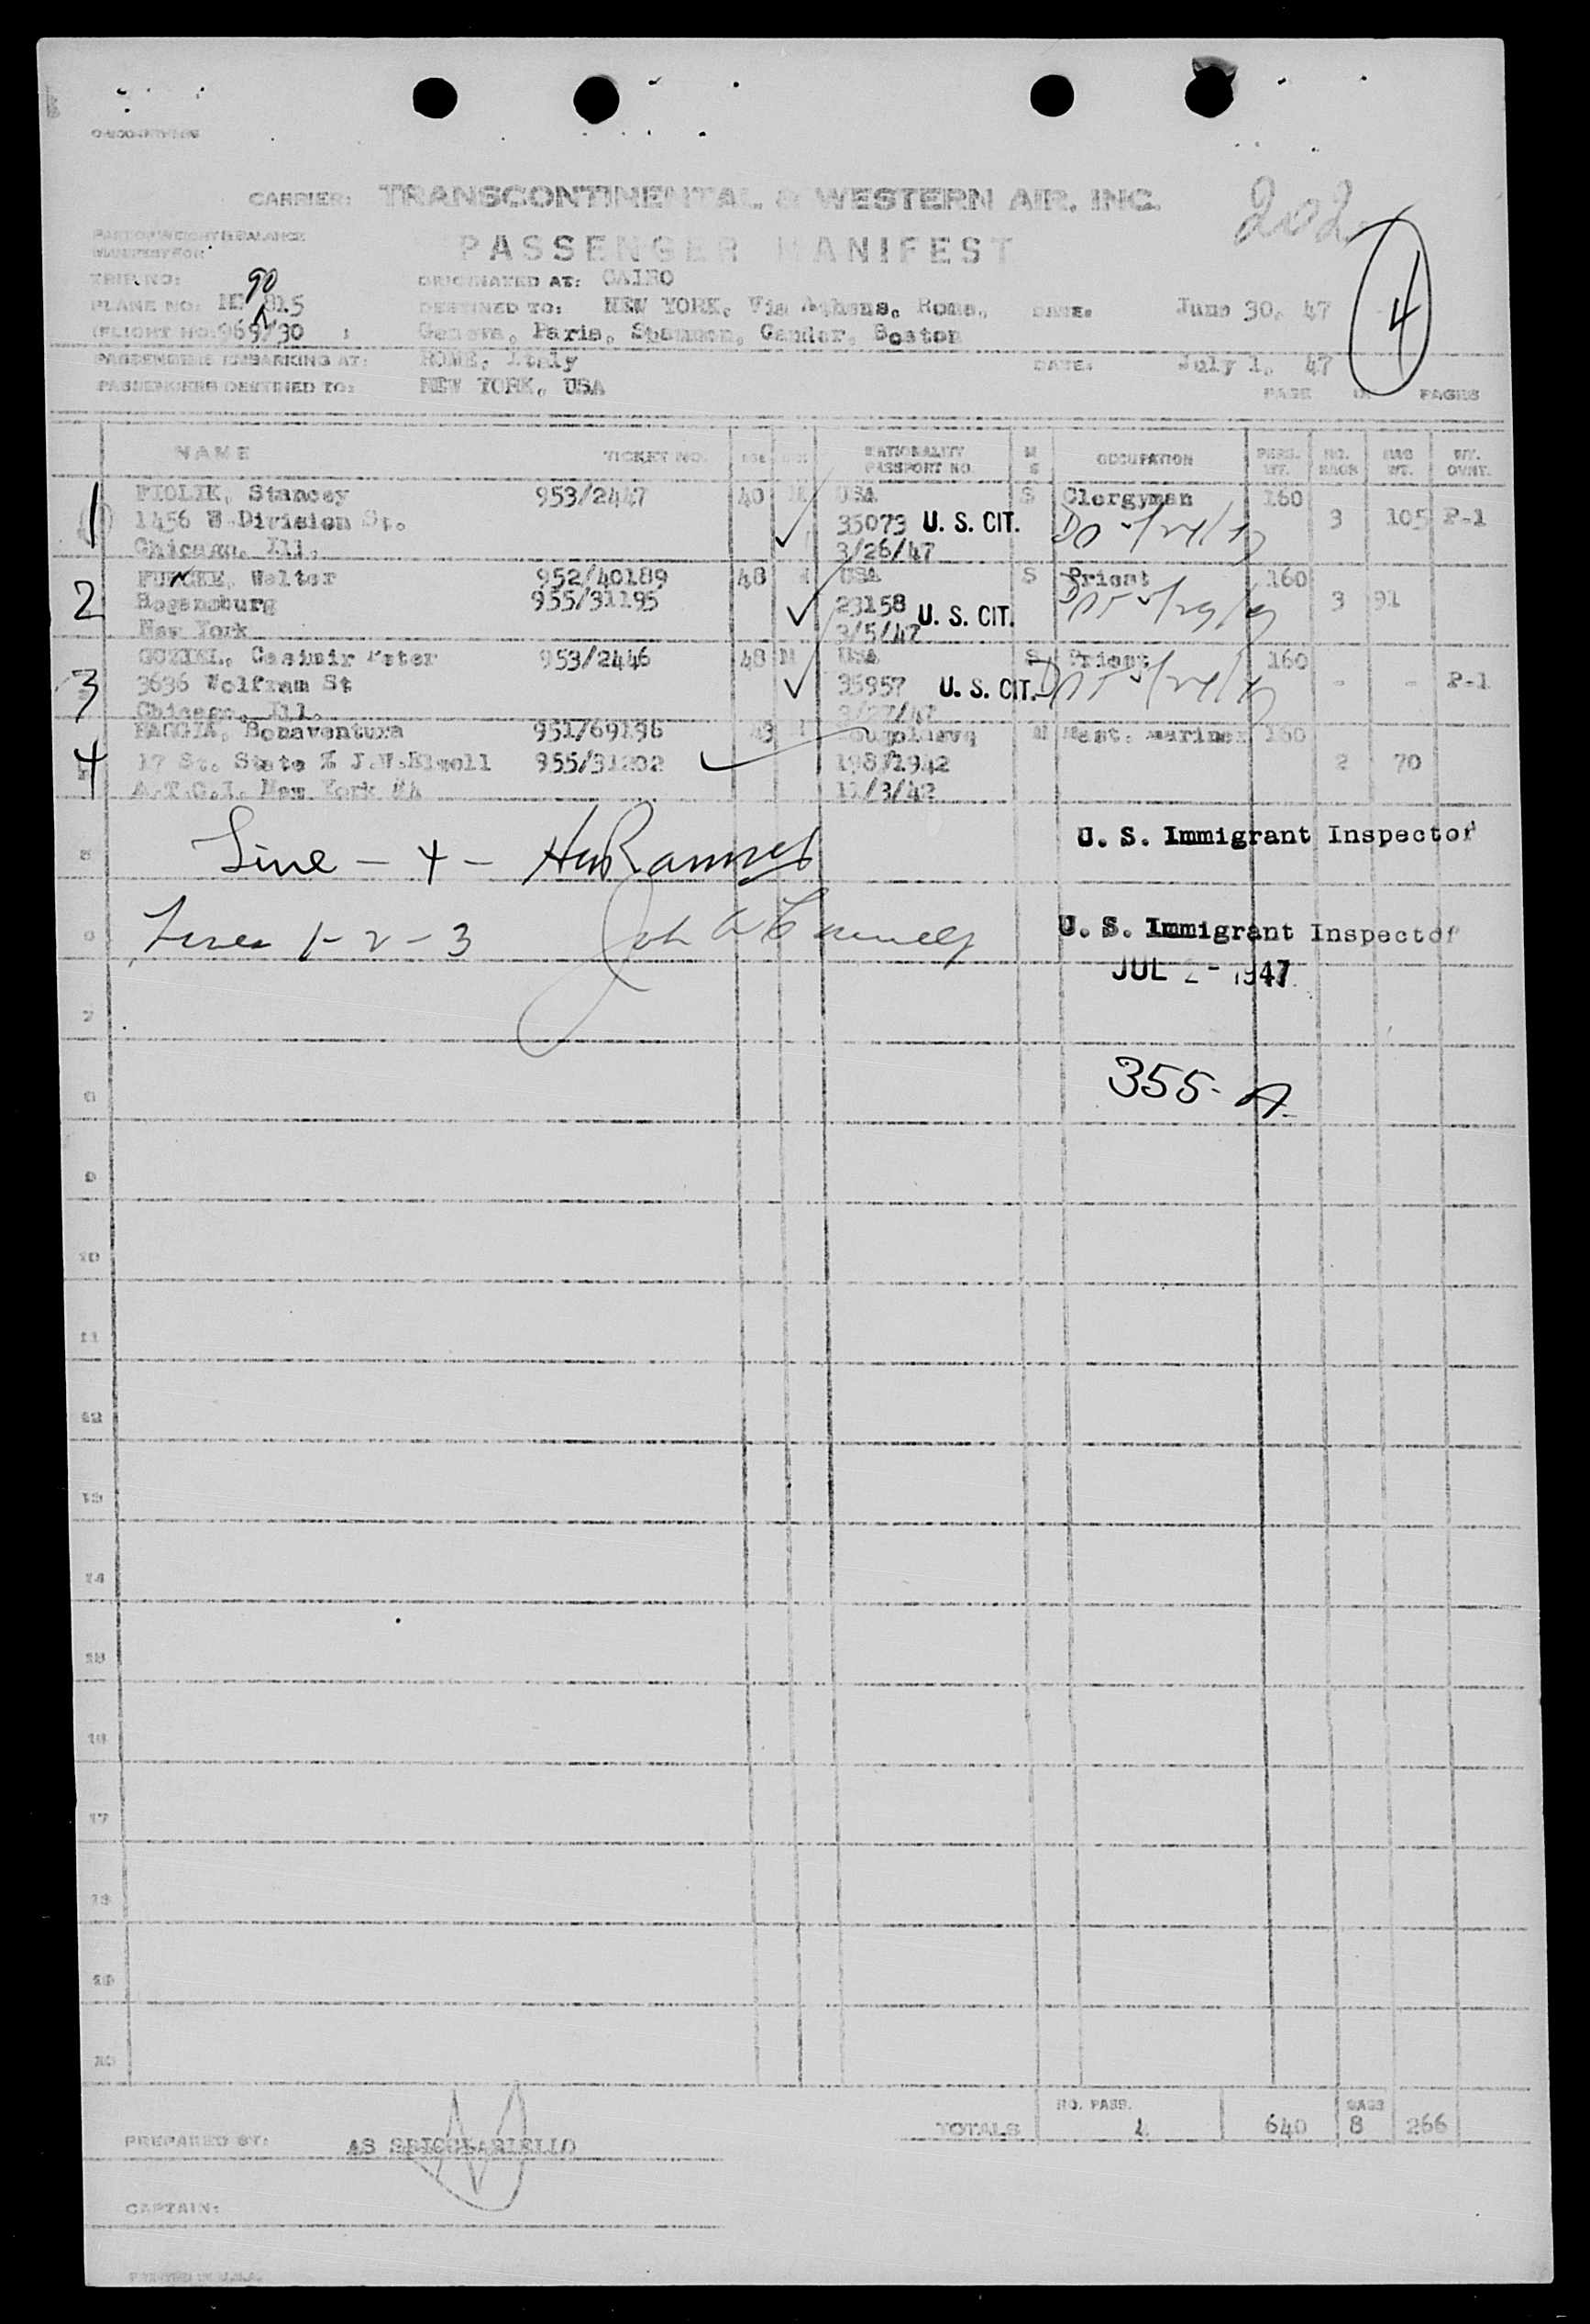 CARRIER: TRANSCONTINENTAL & WESTERN AIR, INC.
202
PASSENGER MANIFEST
4
TRIP NO:
90
ORIGINATED AT: CAIRO
PLANE NO: 815
DESTINED TO: NEW YORK, Via Athens, Rome,
DATE: June 30, 47
FLIGHT NO: 969/30
Geneva, Paris, Shannon, Gander, Boston
PASSENGERS EMBARKING AT: ROME, Italy
DATE: July 1, 47
PASSENGERS DESTINED TO: NEW YORK, USA
PAGE OF PAGES
NAME TICKET NO. AGE SEX NATIONALITY PASSPORT NO. M S OCCUPATION PERS. WT. NO. BAGS BAG WT. WT. OVWT.
1 FIOLEK, Stanley 953/2447 40 M USA S Clergyman 160
1456 W Division St. 35073 U. S. CIT. 3 105 P-1
Chicago, Ill. 3/26/47
Walter 952/40189 48 M USA S Priest 160
2 Hogansburg 955/31195 23158 U. S. CIT. 3 91
New York 3/5/47
Casimir Peter 953/2446 48 M USA S Priest 160
3 3636 Wolfram St 35957 U. S. CIT. - - P-1
Chicago, Ill. 3/27/47
Bonaventura 951/69196 43 M Mast. Mariner 160
4 17 St. State % J.W.Elwell 955/31202 198/1942 2 70
New York 11/3/42
5 Line - 4 - U. S. Immigrant Inspector
6 Lines 1-2-3 U. S. Immigrant Inspector
JUL 2 - 1947
7
355-A
8
9
10
11
12
13
14
15
16
17
18
19
20
TOTALS NO. PASS. 4 640 BAGS 8 266
PREPARED BY:
CAPTAIN:
PRINTED IN U.S.A.